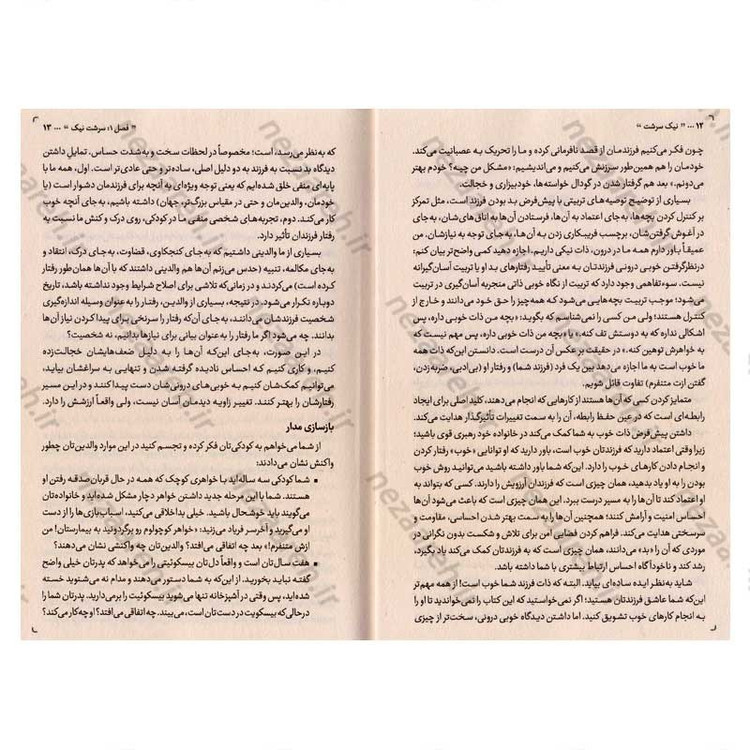 ۱۲ ... " نیک سرشت "
چون فکر می‌کنیم فرزندمان از قصد نافرمانی کرده و ما را تحریک به عصبانیت می‌کند.
خودمان را هم همین‌طور سرزنش می‌کنیم و می‌اندیشیم: «مشکل من چیه؟ خودم بهتر
می‌دونم.» بعد هم گرفتار شدن در گودال خواسته‌ها، خودبیزاری و خجالت.
بسیاری از توضیع توصیه‌های تربیتی با پیش‌فرض بد بودن فرزند است، مثل تمرکز
بر کنترل کردن بچه‌ها، به‌جای اعتماد به آن‌ها، فرستادن آن‌ها به اتاق‌های‌شان، به‌جای
در آغوش گرفتن‌شان، برچسب فریبکاری زدن به آن‌ها، به‌جای توجه به نیازشان. من
عمیقاً باور دارم همه ما در درون، ذات نیکی داریم. اجازه دهید کمی واضح‌تر بیان کنم:
درنظرگرفتن خوبی درونی فرزندتان به معنی تأیید رفتارهای بد او یا تربیت آسان‌گیرانه
نیست. سوءتفاهمی وجود دارد که تربیت از نگاه خوبی ذاتی منجربه آسان‌گیری در تربیت
می‌شود؛ موجب تربیت بچه‌هایی می‌شود که همه‌چیز را حق خود می‌دانند و خارج از
کنترل هستند؛ ولی من کسی را نمی‌شناسم که بگوید: «بچه من ذات خوبی داره، پس
اشکالی نداره که به دوستش تف کنه.» یا «بچه من ذات خوبی داره، پس مهم نیست که
به خواهرش توهین کنه.» در حقیقت بر عکس آن درست است. دانستن این‌که ذات همه
ما خوب است به ما اجازه می‌دهد بین یک فرد (فرزند شما) و رفتار او (بی‌ادبی، ضربه‌زدن،
گفتن ازت متنفرم) تفاوت قائل شویم.
متمایز کردن کسی که آن‌ها هستند از کارهایی که انجام می‌دهند، کلید اصلی برای ایجاد
رابطه‌ای است که در عین حفظ رابطه، آن را به سمت تغییرات تأثیرگذار هدایت می‌کند.
داشتن پیش‌فرض ذات خوب به شما کمک می‌کند در خانواده خود رهبری قوی باشید؛
زیرا وقتی اعتماد دارید که فرزندتان خوب است، باور دارید که او توانایی «خوب» رفتار کردن
و انجام دادن کارهای خوب را دارد. این‌که شما باور داشته باشید می‌توانید روش خوب
بودن را به او یاد بدهید، همان چیزی است که هر فرزندتان آرزویش را دارند. کسی که بتواند به
او اعتماد کند تا آن‌ها را به مسیر درست ببرد. این همان چیزی است که باعث می‌شود آن‌ها
احساس امنیت و آرامش کنند؛ همچنین آن‌ها را به سمت بهتر شدن احساس، مقاومت و
سرسختی هدایت می‌کند. فراهم کردن فضایی امن برای تلاش و شکست بدون نگرانی در
موردی که آنان را «بد» می‌دانند، همان چیزی است که به فرزندتان کمک می‌کند یاد بگیرد،
رشد کند و ناخودآگاه احساس ارتباط بیشتری با شما داشته باشد.
شاید به‌نظر ایده ساده‌ای بیاید. البته که ذات فرزند شما خوب است! از همه مهم‌تر
این‌که شما عاشق فرزندتان هستید؛ اگر نمی‌خواستید که این کتاب را نمی‌خواندید تا او را
به انجام کارهای خوب تشویق کنید. اما داشتن دیدگاه خوبی درونی، سخت‌تر از چیزی
" فصل ۱: سرشت نیک " ... ۱۳
که به‌نظر می‌رسد، است؛ مخصوصاً در لحظات سخت و به‌شدت حساس. تمایل داشتن
دیدگاه بد نسبت به فرزند به دو دلیل اصلی، ساده‌تر و حتی عادی‌تر است. اول، همه ما با
پایه‌ای منفی خلق شده‌ایم که یعنی توجه ویژه‌ای به آنچه برای فرزندمان دشوار است (یا
خودمان، والدین‌مان و حتی در مقیاس بزرگ‌تر، جهان) داشته باشیم، به‌جای آنچه خوب
کار می‌کند. دوم، تجربه‌های شخصی منفی ما در کودکی، روی درک و کنش ما نسبت به
رفتار فرزندان تأثیر دارد.
بسیاری از ما والدینی داشتیم که به‌جای کنجکاوی، قضاوت، به‌جای درک، انتقاد و
به‌جای مکالمه، تنبیه (حدس می‌زنم آن‌ها هم والدینی داشتند که با آن‌ها همان‌طور رفتار
کرده است) می‌کردند و در زمانی که تلاشی برای اصلاح شرایط وجود نداشته باشد، تاریخ
دوباره تکرار می‌شود. در نتیجه، بسیاری از والدین، رفتار را به‌عنوان وسیله اندازه‌گیری
شخصیت فرزندشان می‌دانند، به‌جای آن‌که رفتار را سرنخی برای پیدا کردن نیاز آن‌ها
بدانند. چه می‌شود اگر ما رفتار را به‌عنوان بیانی برای نیازها بدانیم، نه شخصیت؟
در این صورت، به‌جای این‌که آن‌ها را به دلیل ضعف‌هایشان خجالت‌زده
کنیم، و کاری کنیم که احساس نادیده گرفته شدن و تنهایی به سراغشان بیاید،
می‌توانیم کمک‌شان کنیم به خوبی‌های درونی‌شان دست پیدا کنند و در این مسیر
رفتارشان را بهتر کنند. تغییر زاویه دیدمان آسان نیست، ولی واقعاً ارزشش را دارد.
بازسازی مدار
از شما می‌خواهم به کودکی تان فکر کرده و تجسم کنید در این موارد والدین‌تان چطور
واکنش نشان می‌دادند:
▪ شما کودکی سه ساله‌اید با خواهری کوچک که همه در حال قربان‌صدقه رفتن او
هستند. شما با این مرحله جدید داشتن خواهر دچار مشکل شده‌اید و خانواده‌تان
می‌گویند باید خوشحال باشید. خیلی بداخلاقی می‌کنید، اسباب‌بازی‌ها را از دست
او می‌گیرید و آخرسر فریاد می‌زنید: «خواهر کوچولوم رو برگردونید به بیمارستان! من
ازش متنفرم!» بعد چه اتفاقی می‌افتد؟ والدین‌تان چه واکنشی نشان می‌دهند؟
▪ هفت سال‌تان است و واقعاً دل‌تان بیسکوئیتی را می‌خواهد که پدرتان خیلی واضح
گفته نباید بخورید. از این‌که به شما دستور می‌دهند و مدام نه می‌شنوید خسته
شده‌اید، پس وقتی در آشپزخانه تنها می‌شوید بیسکوئیت را برمی‌دارید. پدرتان شما را
درحالی‌که بیسکویت در دست‌تان است، می‌بیند. چه اتفاقی می‌افتد؟ او چه کار می‌کند؟
nezaareh.ir